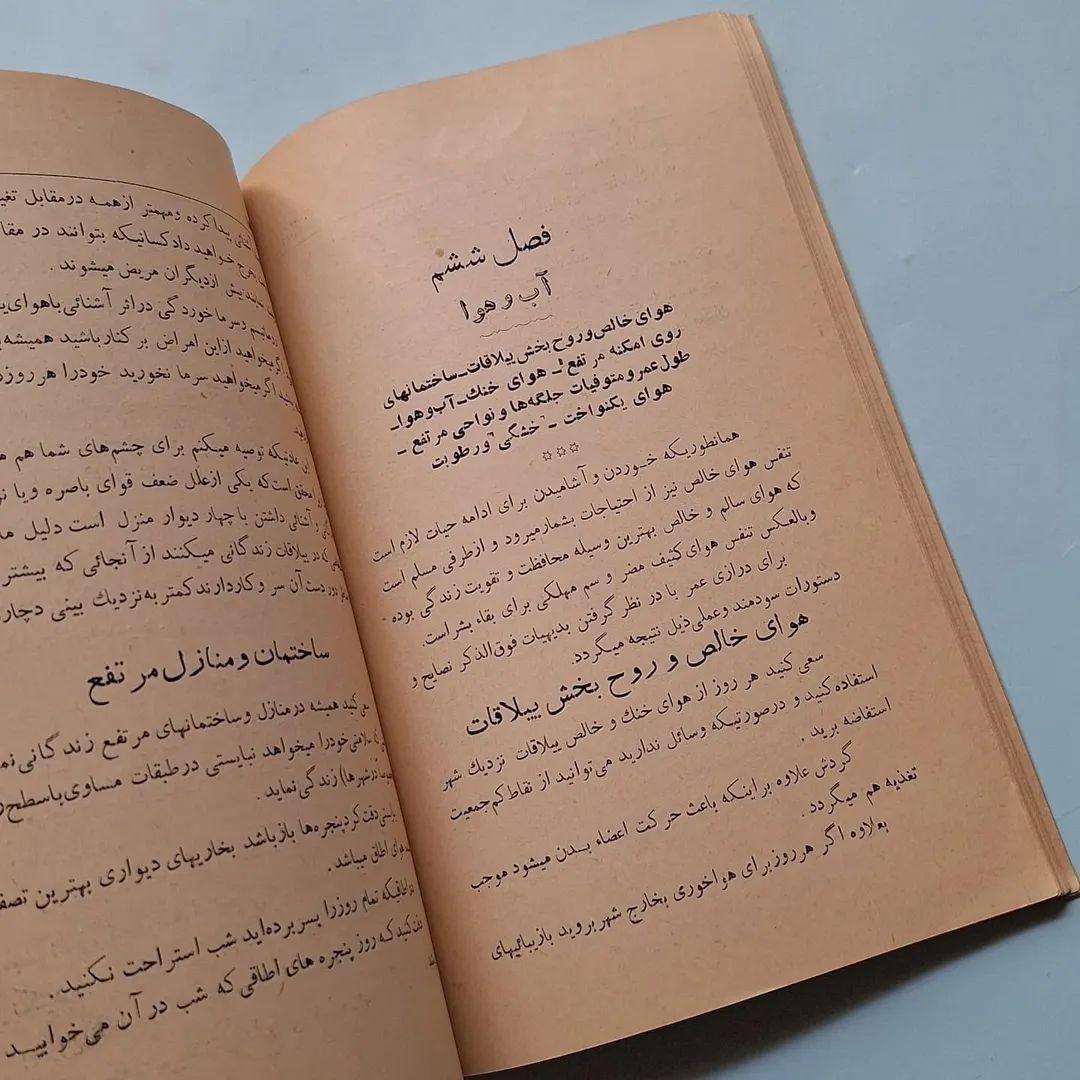 فصل ششم
آب و هوا
هوای خالص و روح بخش ییلاقات ـ ساختمانهای
روی امکنه مرتفع ـ هوای خنك ـ آب و هوا ـ
طول عمر و متوفیات جلگه‌ها و نواحی مرتفع ـ
هوای یکنواخت ـ خشگی و رطوبت
همانطوریکه خوردن و آشامیدن برای ادامه حیات لازم است
تنفس هوای خالص نیز از احتیاجات بشمار میرود و از طرفی مسلم است
که هوای سالم و خالص بهترین وسیله محافظت و تقویت زندگی بوده -
و بالعکس تنفس هوای کثیف مضر و سم مهلکی برای بقاء بشر است.
برای درازی عمر با در نظر گرفتن بدیهیات فوق‌الذکر نصایح و
دستورات سودمند و عملی ذیل نتیجه میگردد.
هوای خالص و روح بخش ییلاقات
سعی کنید هر روز از هوای خنك و خالص ییلاقات نزدیك شهر
استفاده کنید و درصورتیکه وسائل ندارید می‌توانید از نقاط کم‌جمعیت
استفاضه برید .
گردش علاوه بر اینکه باعث حرکت اعضاء بدن میشود موجب
تغذیه هم میگردد .
بعلاوه اگر هر روز برای هواخوری بخارج شهر بروید با زیبائیهای
پیدا کرده و مهمتر از همه در مقابل
خواهید داد کسانیکه بتوانند در
بیش از دیگران مریض میشوند .
و سرما خوردگی در اثر آشنائی با هوای
میخواهید از این امراض بر کنار باشید همیشه
اگر میخواهید سرما نخورید خود را هر روز
عادتیکه توصیه میکنم برای چشم‌های شما هم
محقق است که یکی از علل ضعف قوای باصره و یا
و آشنائی داشتن با چهار دیوار منزل است دلیل
در ییلاقات زندگانی میکنند از آنجائی که بیشتر
دور دست آن سر و کار دارند کمتر به نزدیك بینی دچار
ساختمان و منازل مرتفع
کنید همیشه در منازل و ساختمانهای مرتفع زندگانی
سلامتی خود را میخواهد نبایستی در طبقات مساوی با سطح
در شهرها) زندگی نماید .
بایستی دقت کرد پنجره‌ها باز باشد بخاریهای دیواری بهترین
هوای اطاق میباشد .
در اطاقیکه تمام روز را بسر برده‌اید شب استراحت نکنید .
دقت کنید که روز پنجره های اطاقی که شب در آن می‌خوابید